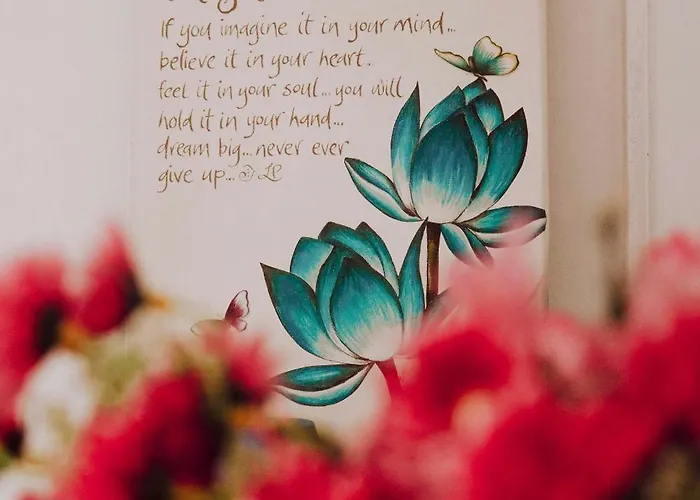 If you imagine it in your mind...
believe it in your heart..
feel it in your soul... you will
hold it in your hand...
dream big... never ever
give up...